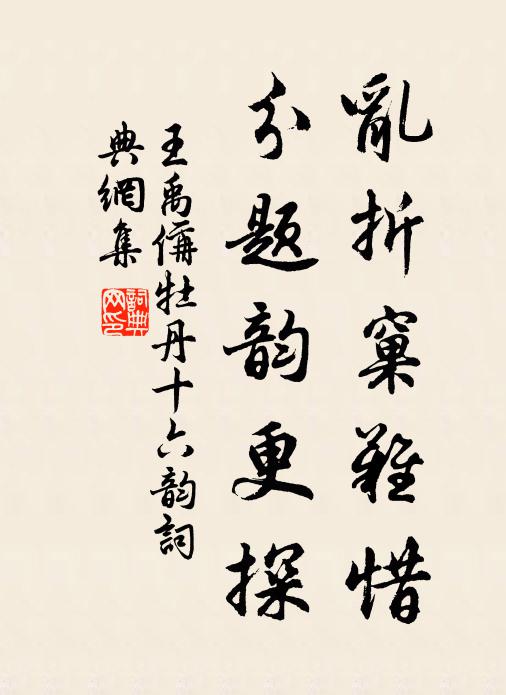 亂折窠難惜
分題韵更探
王禹偁牡丹十六韵詞
典網集
詞典
网印